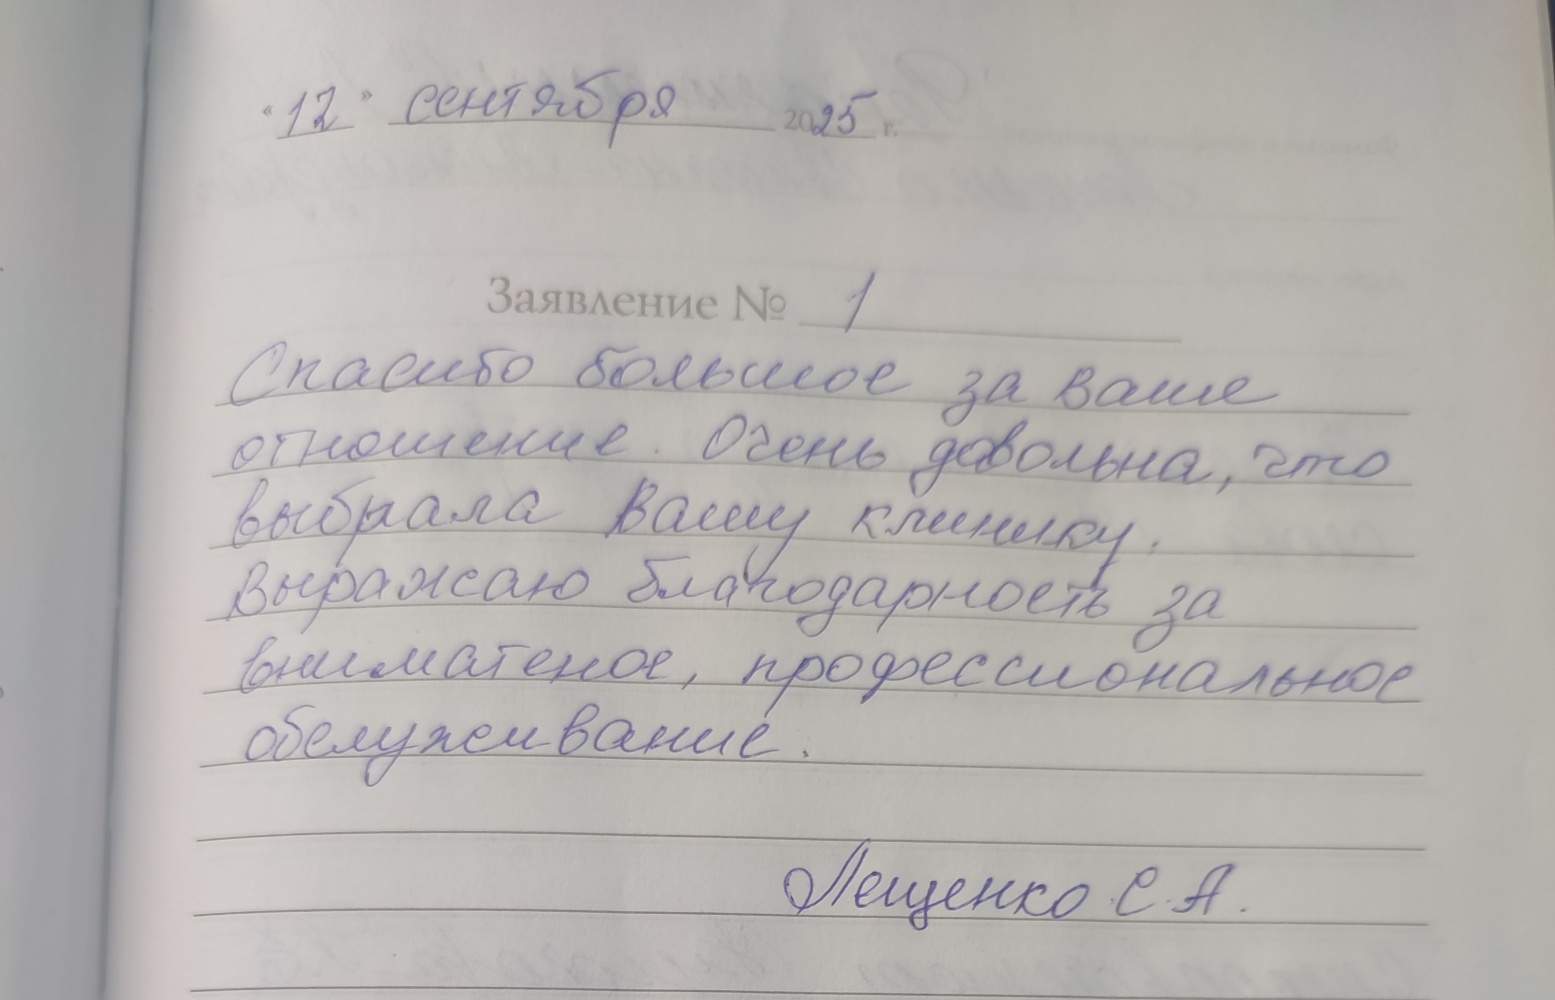 "12" сентября 2025 г.
Заявление № 1
Спасибо большое за ваше
отношение. Очень довольна, что
выбрала Вашу клинику.
Выражаю благодарность за
вниматеное, профессиональное
обслуживание.
Лещенко С.А.